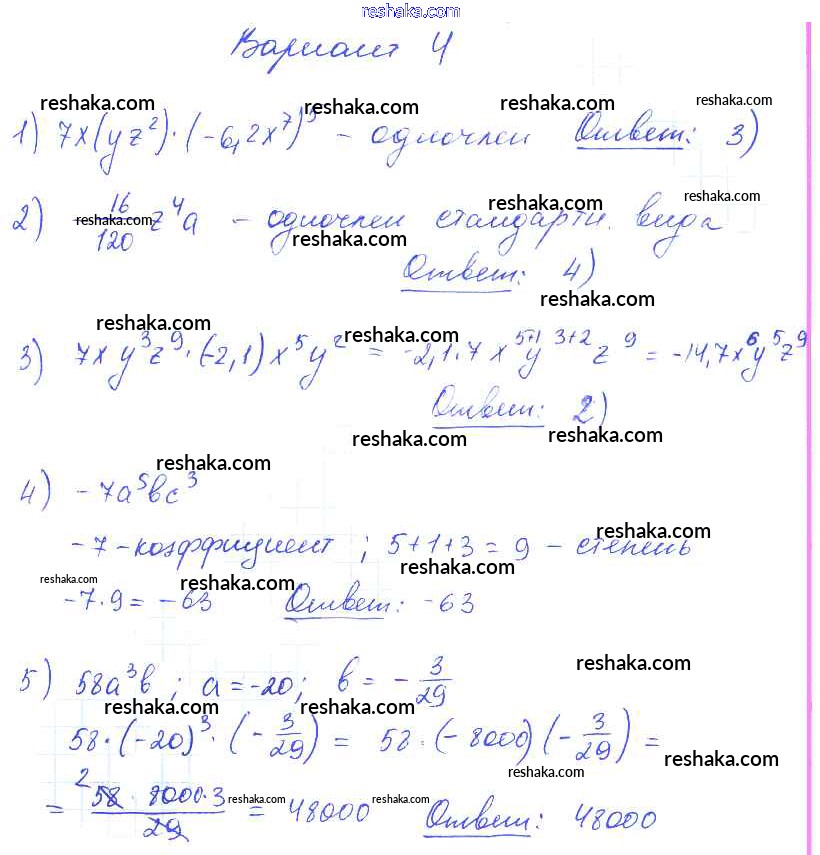 reshaka.com
Вариант 4
reshaka.com reshaka.com reshaka.com reshaka.com
1) 7x(yz²)·(-6,2x⁷)³ - одночлен Ответ: 3)
reshaka.com reshaka.com reshaka.com
2) 16/120 z⁴a - одночлен стандартн. вида
reshaka.com reshaka.com
Ответ: 4)
reshaka.com reshaka.com reshaka.com
3) 7xy³z⁹·(-2,1)x⁵y² = -2,1·7x⁵⁺¹y³⁺²z⁹ = -14,7x⁶y⁵z⁹
Ответ: 2)
reshaka.com reshaka.com
reshaka.com
4) -7a⁵bc³
reshaka.com
-7 - коэффициент ; 5+1+3=9 - степень
reshaka.com reshaka.com reshaka.com
-7·9 = -63 Ответ: -63
reshaka.com
5) 58a³b ; a = -20; b = -3/29
reshaka.com reshaka.com reshaka.com
58·(-20)³·(-3/29) = 58·(-8000)(-3/29) =
reshaka.com reshaka.com
= 2 58·8000·3/29 = 48000 Ответ: 48000
reshaka.com reshaka.com reshaka.com